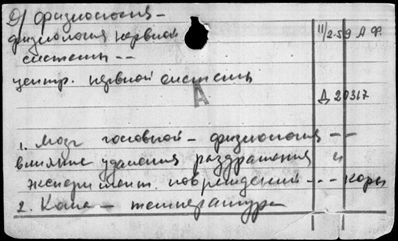 физиология –
физиология нервной
системы – –
центр. нервной системы
II/2-59 А Ф.
А
Д 20317
1. мозг головной – физиология – –
влияние удаления раздражения и
эксперимент. повреждений – – – коры
2. Кожа – температура